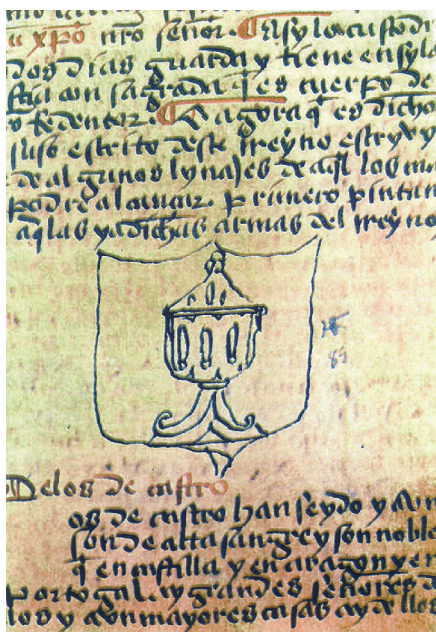 a xp̃o nr̃o señor. Asy la custodi
dos dias guarda y tiene en sy la
stia con sagrada q̃ es cuerpo de
o Redentor. Ca agora q̃ es dicho
suso escrito deste rreyno escryvy
de algunos lynajes de aq̃l los ma
podre alcançar. primero pintan
aq̃las ya dichas armas del rreyno
Delos de castro
os de castro han seydo y aun
son de alta sangre y son noble
q̃ en castilla y en aragon y en
portogal. ay grandes señores d
los y aun mayores casas ay dellos